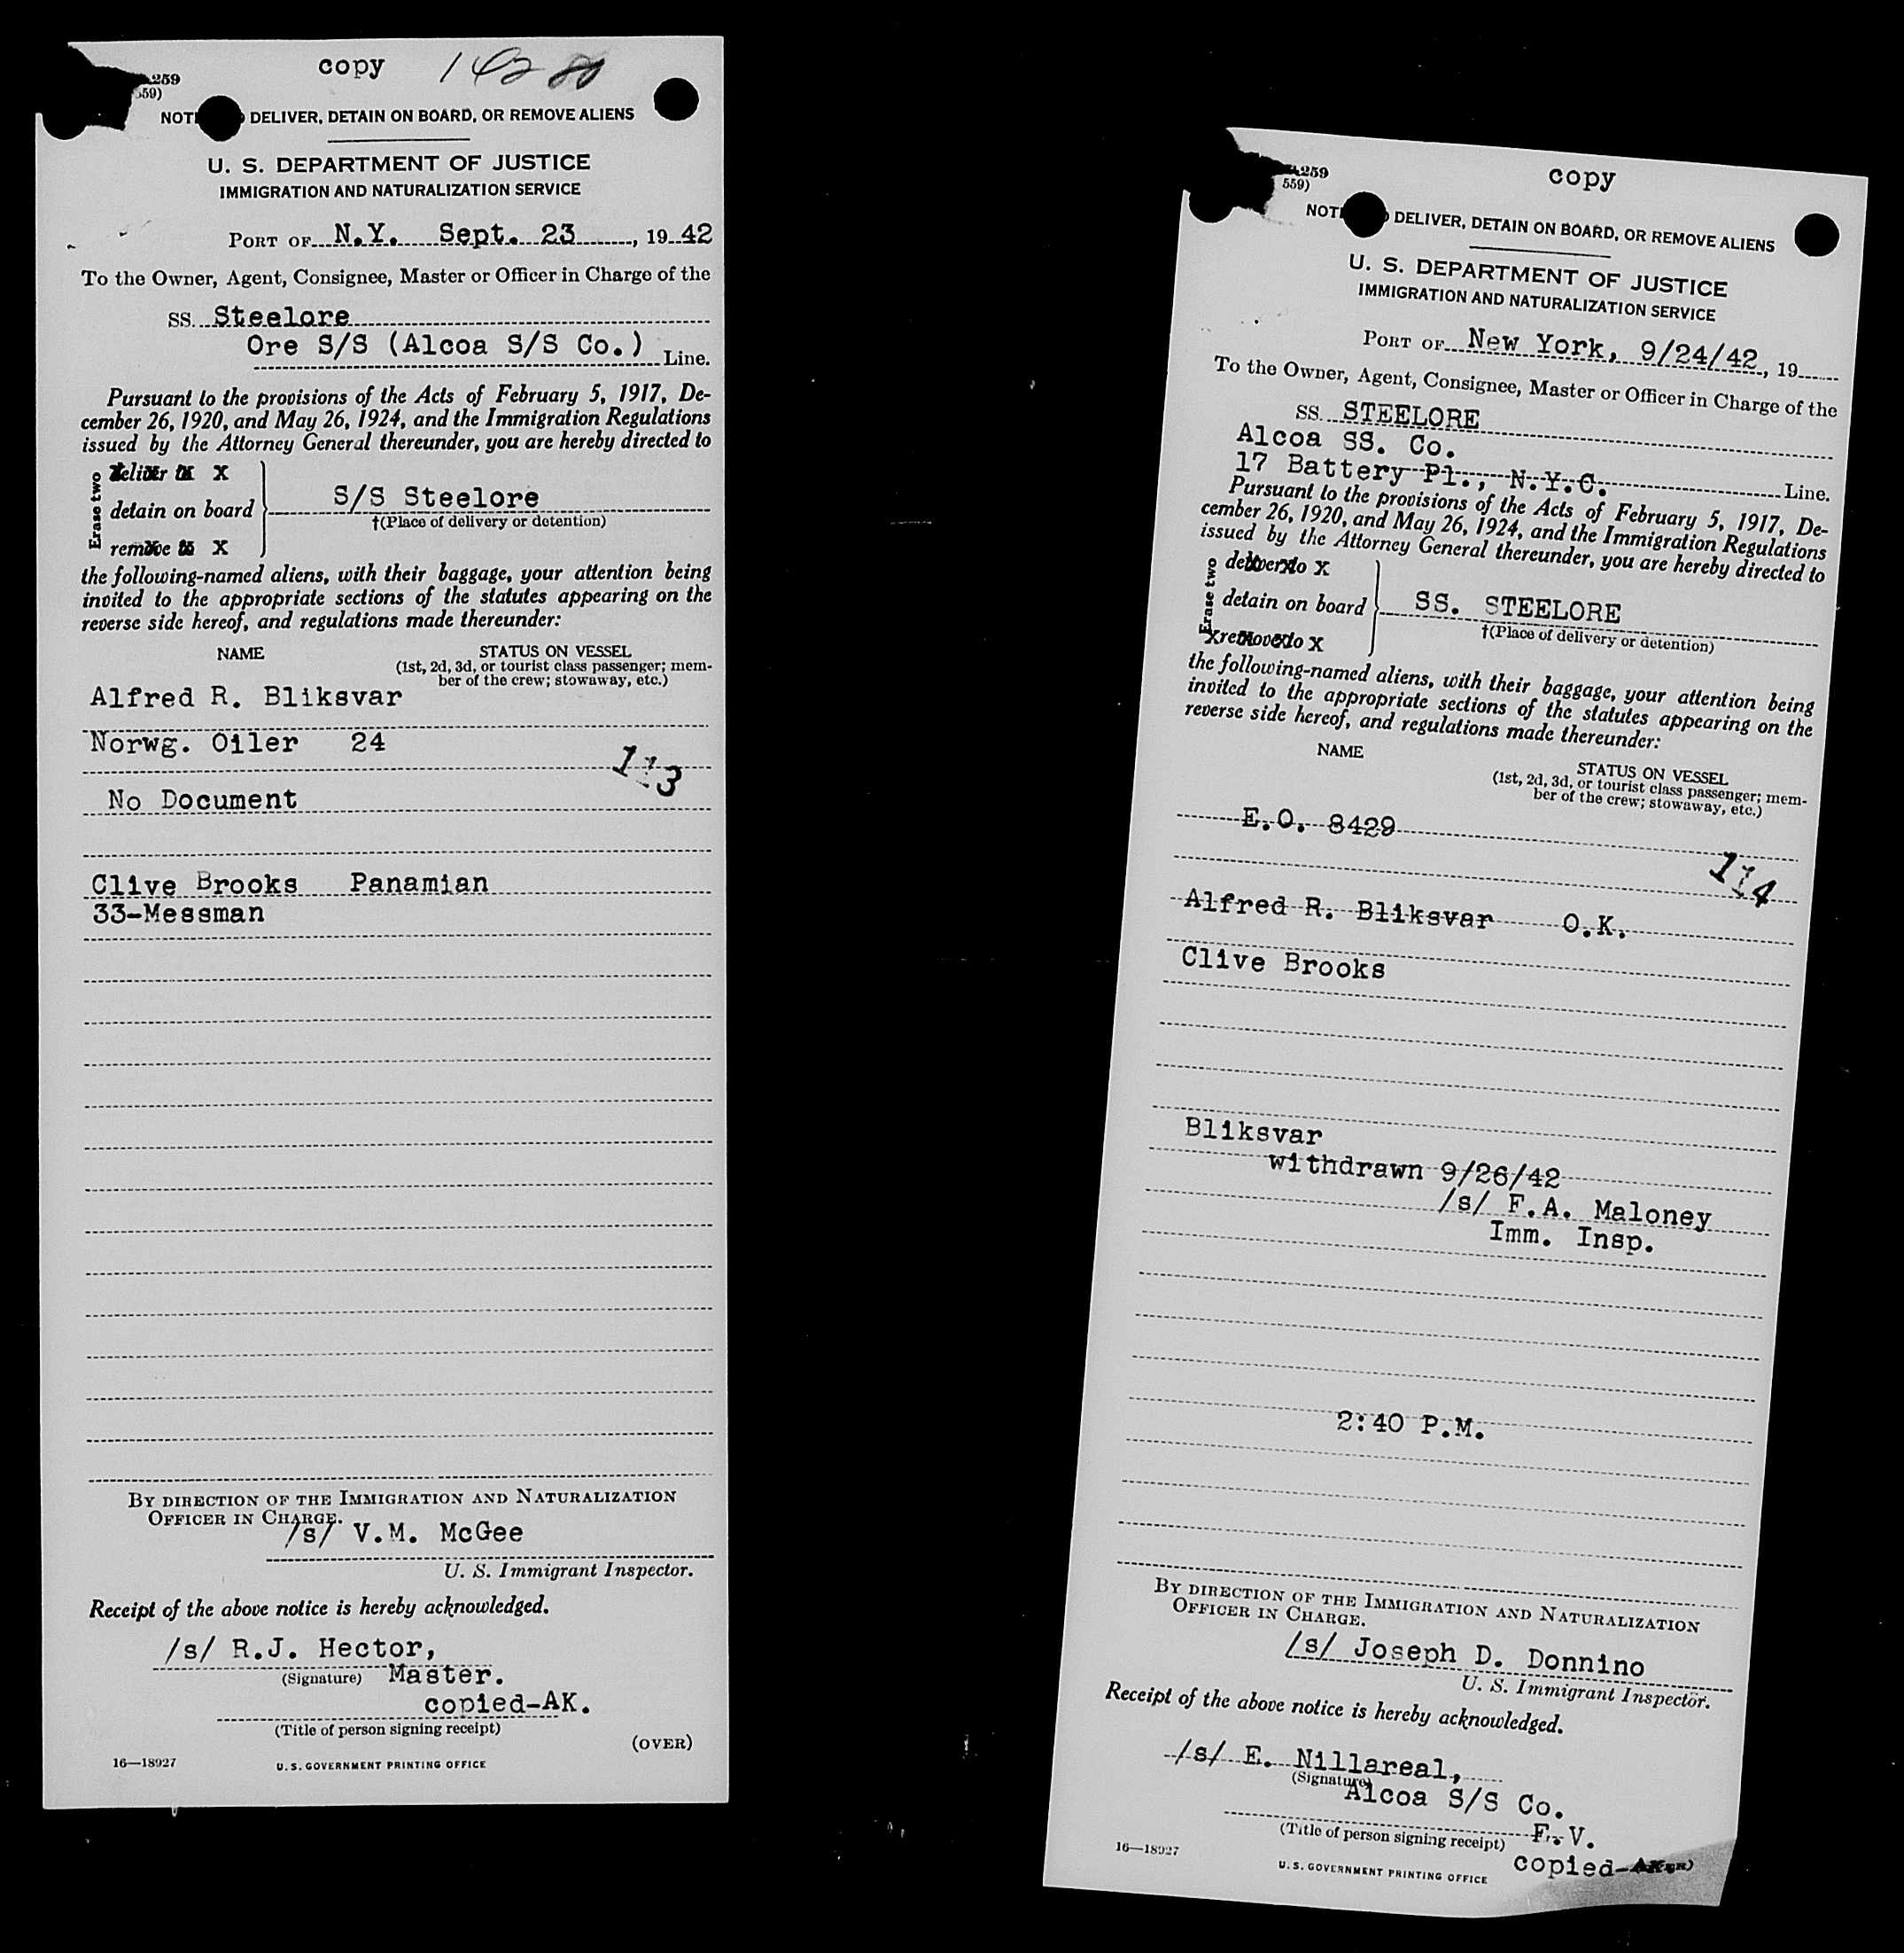 copy
259
559)
DELIVER, DETAIN ON BOARD, OR REMOVE ALIENS
U. S. DEPARTMENT OF JUSTICE
IMMIGRATION AND NATURALIZATION SERVICE
PORT OF N.Y. Sept. 23, 19 42
To the Owner, Agent, Consignee, Master or Officer in Charge of the
SS. Steelore
Ore S/S (Alcoa S/S Co.) Line.
Pursuant to the provisions of the Acts of February 5, 1917, De-
cember 26, 1920, and May 26, 1924, and the Immigration Regulations
issued by the Attorney General thereunder, you are hereby directed to
Erase two
deliver to X
detain on board
remove to X
S/S Steelore
†(Place of delivery or detention)
the following-named aliens, with their baggage, your attention being
invited to the appropriate sections of the statutes appearing on the
reverse side hereof, and regulations made thereunder:
NAME
STATUS ON VESSEL
(1st, 2d, 3d, or tourist class passenger; mem-
ber of the crew; stowaway, etc.)
Alfred R. Bliksvar
Norwg. Oiler 24
113
No Document
Clive Brooks Panamian
33-Messman
BY DIRECTION OF THE IMMIGRATION AND NATURALIZATION
OFFICER IN CHARGE.
/s/ V.M. McGee
U. S. Immigrant Inspector.
Receipt of the above notice is hereby acknowledged.
/s/ R.J. Hector,
(Signature) Master.
copied-AK.
(Title of person signing receipt)
(OVER)
16—18927
U. S. GOVERNMENT PRINTING OFFICE
copy
259
559)
DELIVER, DETAIN ON BOARD, OR REMOVE ALIENS
U. S. DEPARTMENT OF JUSTICE
IMMIGRATION AND NATURALIZATION SERVICE
PORT OF New York, 9/24/42, 19
To the Owner, Agent, Consignee, Master or Officer in Charge of the
SS. STEELORE
Alcoa SS. Co.
17 Battery Pl., N.Y.C. Line.
Pursuant to the provisions of the Acts of February 5, 1917, De-
cember 26, 1920, and May 26, 1924, and the Immigration Regulations
issued by the Attorney General thereunder, you are hereby directed to
Erase two
deliver to X
detain on board
X remove to X
SS. STEELORE
†(Place of delivery or detention)
the following-named aliens, with their baggage, your attention being
invited to the appropriate sections of the statutes appearing on the
reverse side hereof, and regulations made thereunder:
NAME
STATUS ON VESSEL
(1st, 2d, 3d, or tourist class passenger; mem-
ber of the crew; stowaway, etc.)
E.O. 8429
114
Alfred R. Bliksvar O.K.
Clive Brooks
Bliksvar
withdrawn 9/26/42
/s/ F.A. Maloney
Imm. Insp.
2:40 P.M.
BY DIRECTION OF THE IMMIGRATION AND NATURALIZATION
OFFICER IN CHARGE.
/s/ Joseph D. Donnino
U. S. Immigrant Inspector.
Receipt of the above notice is hereby acknowledged.
/s/ E. Nillareal,
(Signature)
Alcoa S/S Co.
F. V.
(Title of person signing receipt)
copied-AK
16—18927
U. S. GOVERNMENT PRINTING OFFICE